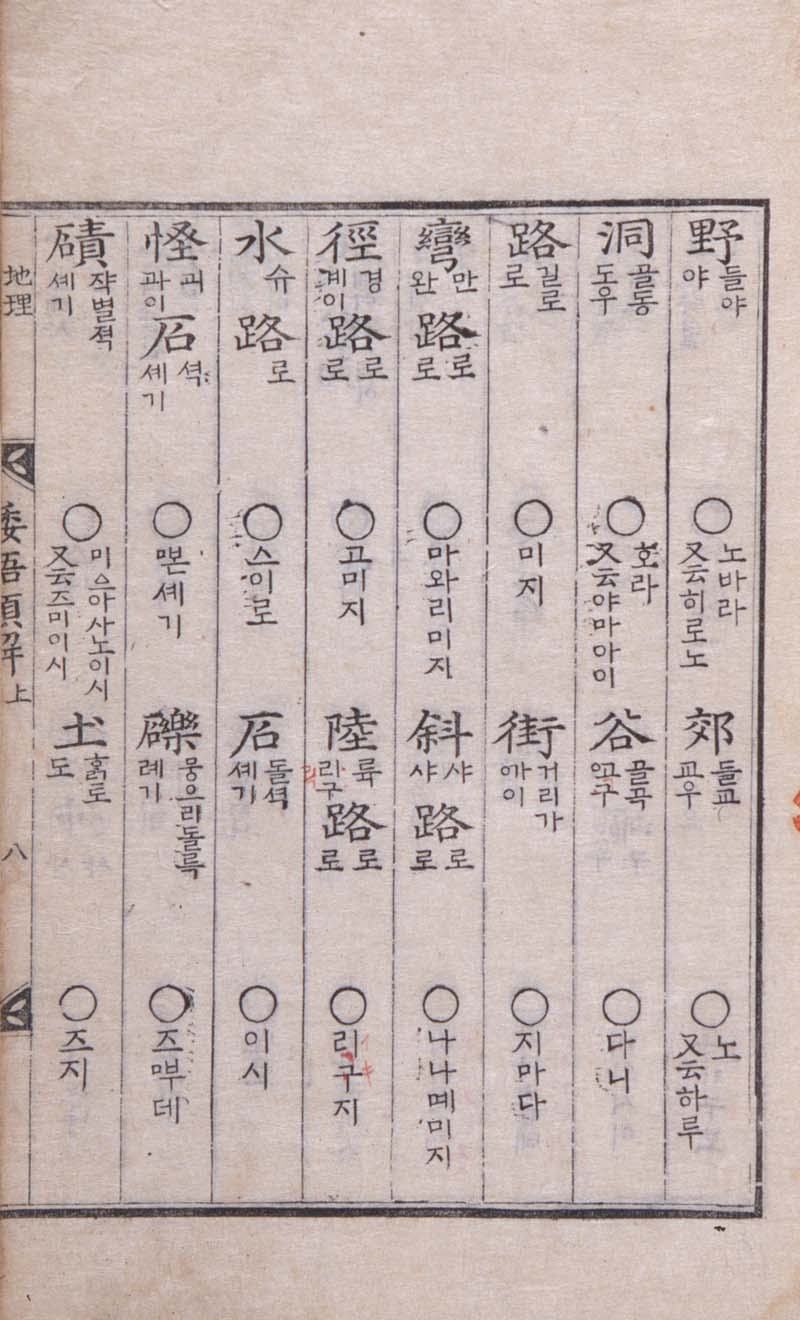 野 들야 야 ○ 노바라 又云히로노
郊 들교 교우 ○ 노 又云하루
洞 골동 도우 ○ 호라 又云야마아이
谷 골곡 고구 ○ 다니
路 길로 로 ○ 미지
街 거리가 가이 ○ 지마다
彎 만 완 路 로 로 ○ 마와리미지
斜 샤 샤 路 로 로 ○ 나나몌미지
徑 경 계이 路 로 로 ○ 고미지
陸 륙 리구 路 로 로 ○ 리구지
水 슈 路 로 ○ 스이로
石 돌셕 셰기 ○ 이시
恠 괴 과이 石 셕 셰기 ○ 셰기
礫 뭉으리돌륵 례기 ○ 즈뿌데
磧 쟉별젹 셰기 ○ 미스아사노이시 又云즈미이시
土 흙토 도 ○ 즈지
地理
倭語類解 上
八